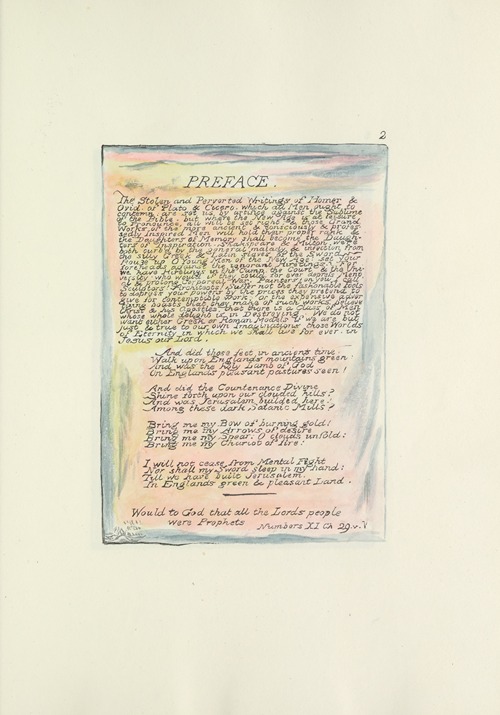 2
PREFACE.
The Stolen and Perverted Writings of Homer &
Ovid: of Plato & Cicero. which all Men ought to
contemn: are set up by artifice against the Sublime
of the Bible. but when the New Age is at leisure
to Pronounce: all will be set right: & those Grand
Works of the more ancient & consciously & profes-
sedly Inspired Men, will hold their proper rank, &
the Daughters of Memory shall become the Daugh-
ters of Inspiration. Shakspeare & Milton were
both curbd by the general malady & infection from
the silly Greek & Latin slaves of the Sword.
Rouze up O Young Men of the New Age! set your
foreheads against the ignorant Hirelings! For
we have Hirelings in the Camp, the Court, & the Uni-
versity: who would if they could, for ever depress Ment-
al & prolong Corporeal War. Painters! on you I call!
Sculptors! Architects! Suffer not the fashonable Fools
to depress your powers by the prices they pretend to
give for contemptible works or the expensive advertizing
boasts that they make of such works; believe
Christ & his Apostles that there is a Class of Men
whose whole delight is in Destroying. We do not
want either Greek or Roman Models if we are but
just & true to our own Imaginations, those Worlds
of Eternity in which we shall live for ever; in
Jesus our Lord.
And did those feet in ancient time,
Walk upon Englands mountains green:
And was the holy Lamb of God,
On Englands pleasant pastures seen!
And did the Countenance Divine,
Shine forth upon our clouded hills?
And was Jerusalem builded here,
Among these dark Satanic Mills?
Bring me my Bow of burning gold:
Bring me my Arrows of desire:
Bring me my Spear: O clouds unfold!
Bring me my Chariot of fire!
I will not cease from Mental Fight,
Nor shall my Sword sleep in my hand:
Till we have built Jerusalem,
In Englands green & pleasant Land.
Would to God that all the Lords people
were Prophets Numbers XI Ch 29.v.